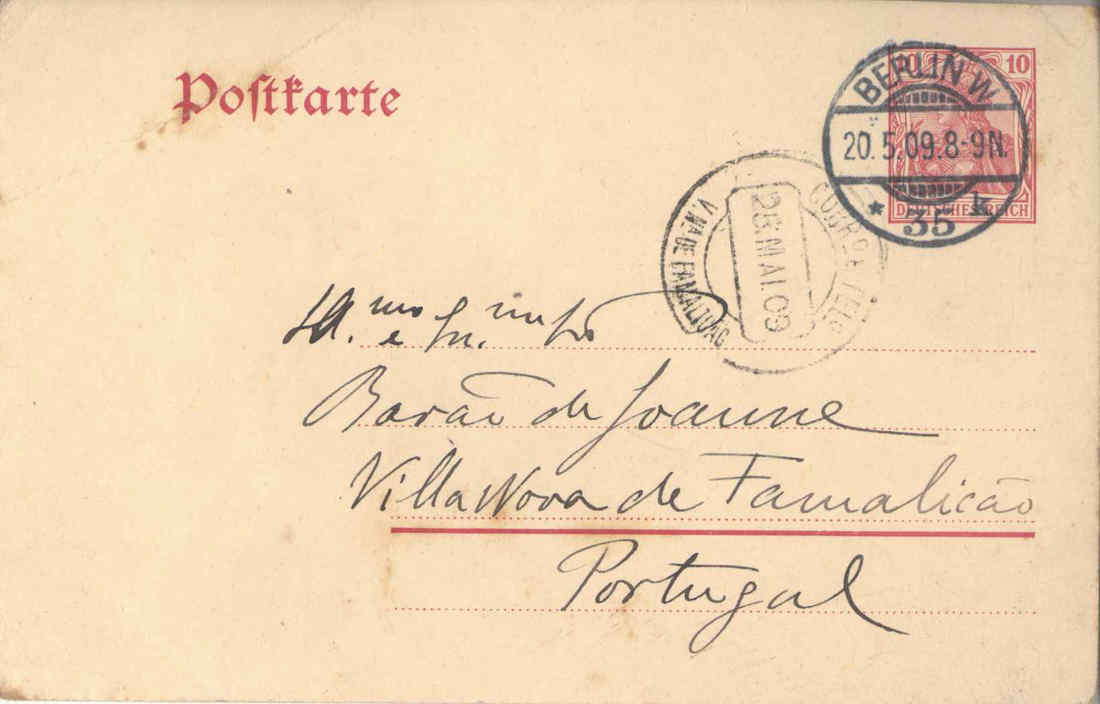 Postkarte
10 10
BERLIN W
20.5.09.8-9N.
* 35 k
DEUTSCHES REICH
CORRO E TELO
25.MAI.09
V. Nᴬ DE FAMALICÃO
Barão de Joanne
Villa Nova de Famalicão
Portugal